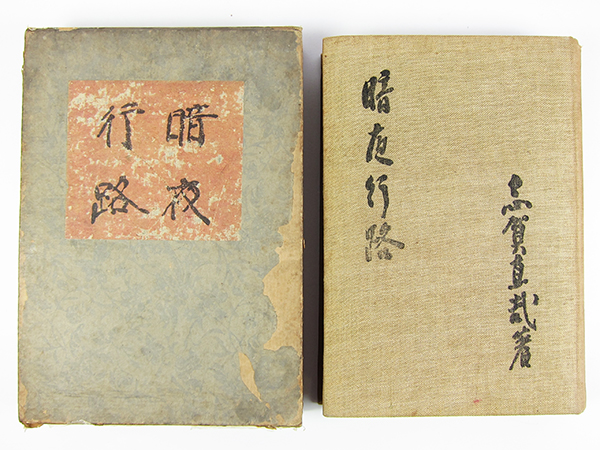 暗夜
行路
暗夜行路
志賀直哉著